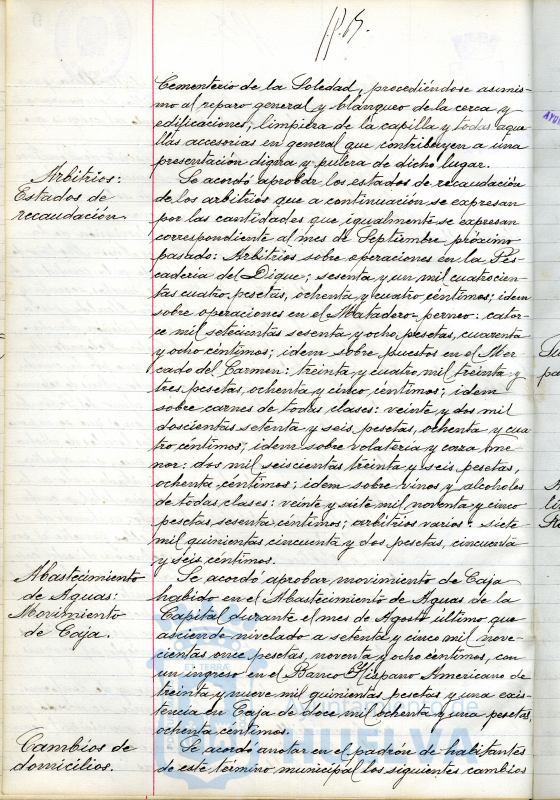 Cementerio de la Soledad, procediéndose asimis-
mo al reparo general y blanqueo de la cerca y
edificaciones, limpieza de la capilla y todas aque
llas accesorias en general que contribuyen a una
presentación digna y pulcra de dicho lugar.
Arbitrios:
Estados de
recaudación
Se acordó aprobar los estados de recaudación
de los arbitrios que a continuación se expresan
por las cantidades que igualmente se expresan
correspondiente al mes de Septiembre próximo
pasado: Arbitrios sobre operaciones en la Pes-
cadería del Dique; sesenta y un mil cuatrocien-
tas cuatro, pesetas, ochenta y cuatro céntimos; idem
sobre operaciones en el Matadero perneo: cator-
ce mil setecientas sesenta y ocho, pesetas, cuarenta
y ocho céntimos; idem sobre puestos en el Mer-
cado del Carmen: treinta y cuatro mil treinta y
tres pesetas, ochenta y cinco céntimos; idem
sobre carnes de todas clases: veinte y dos mil
doscientas setenta y seis pesetas, ochenta y cua
tro céntimos; idem sobre volatería y caza me-
nor: dos mil seiscientas treinta y seis pesetas,
ochenta céntimos; idem sobre vinos y alcoholes
de todas clases: veinte y siete mil noventa y cinco
pesetas, sesenta céntimos; arbitrios varios: siete
mil quinientas cincuenta y dos pesetas, cincuenta
y seis céntimos.
Abastecimiento
de Aguas:
Movimiento
de Caja.
Se acordó aprobar movimiento de Caja
habido en el Abastecimiento de Aguas de la
Capital durante el mes de Agosto último que
asciende nivelado a setenta y cinco mil nove-
cientas once pesetas, noventa y ocho céntimos, con
un ingreso en el Banco Hispano Americano de
treinta y nueve mil quinientas pesetas y una exis-
tencia en Caja de doce mil ochenta y una pesetas,
ochenta céntimos.
Cambios de
domicilios.
Se acordó anotar en el padrón de habitantes
de este término municipal los siguientes cambios
Ayuntamiento de
HUELVA